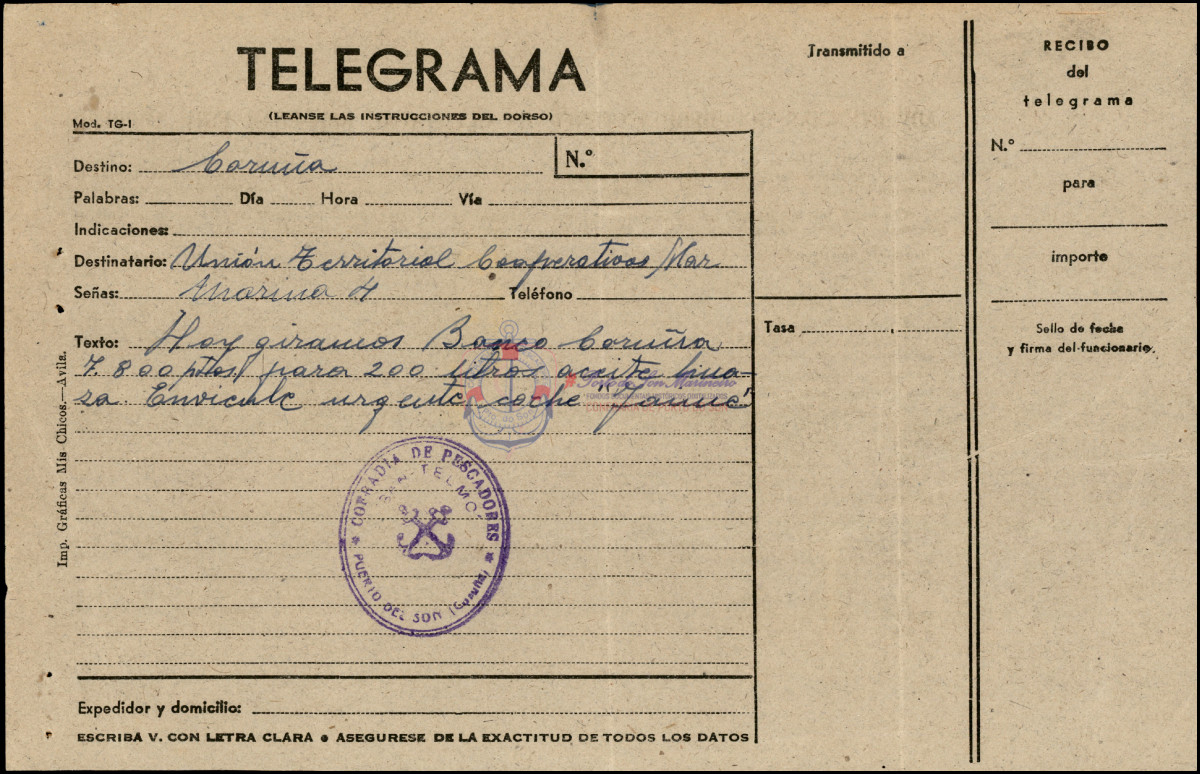 TELEGRAMA
(LEANSE LAS INSTRUCCIONES DEL DORSO)
Mod. TG-1
Destino: Coruña
N.º
Palabras: Día Hora Vía
Indicaciones:
Destinatario: Unión Territorial Cooperativas Mar
Señas: Marina 4 Teléfono
Texto: Hoy giramos Banco Coruña
7.800 ptas para 200 litros aceite
Envienle urgente coche "Jaime"
COFRADIA DE PESCADORES
SAN TELMO
PUERTO DEL SON (Coruña)
Porto do Son Marineiro
Expedidor y domicilio:
ESCRIBA V. CON LETRA CLARA ● ASEGURESE DE LA EXACTITUD DE TODOS LOS DATOS
Imp. Gráficas Mis Chicos.—Avila.
Transmitido a
Tasa
RECIBO
del
telegrama
N.º
para
importe
Sello de fecha
y firma del funcionario.